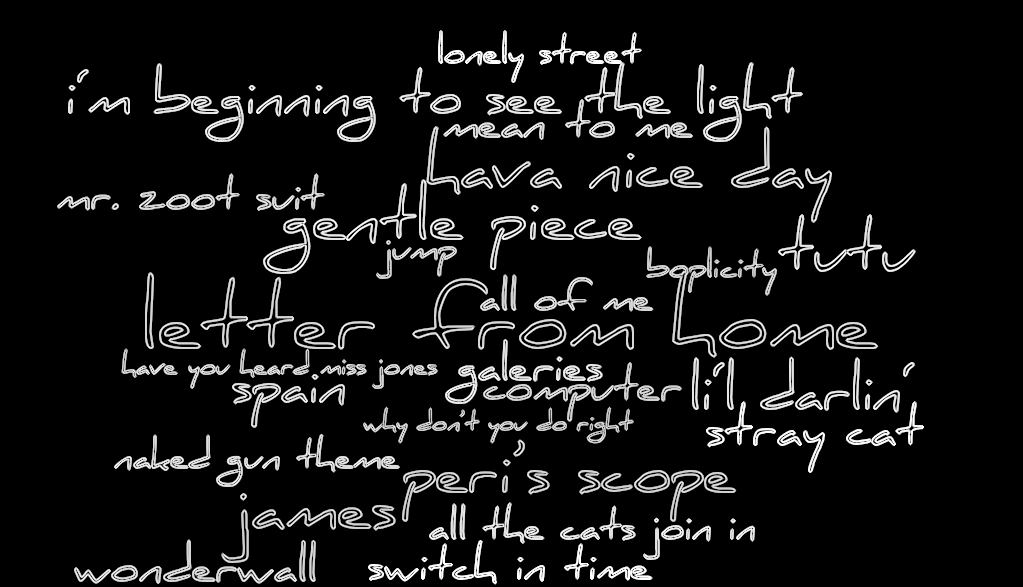 lonely street
i'm beginning to see the light
mean to me
hava nice day
mr. zoot suit
gentle piece
jump
boplicity
tutu
all of me
letter from home
have you heard miss jones
galeries
spain
computer
li'l darlin'
why don't you do right
stray cat
naked gun theme
peri's scope
james
all the cats join in
wonderwall
switch in time